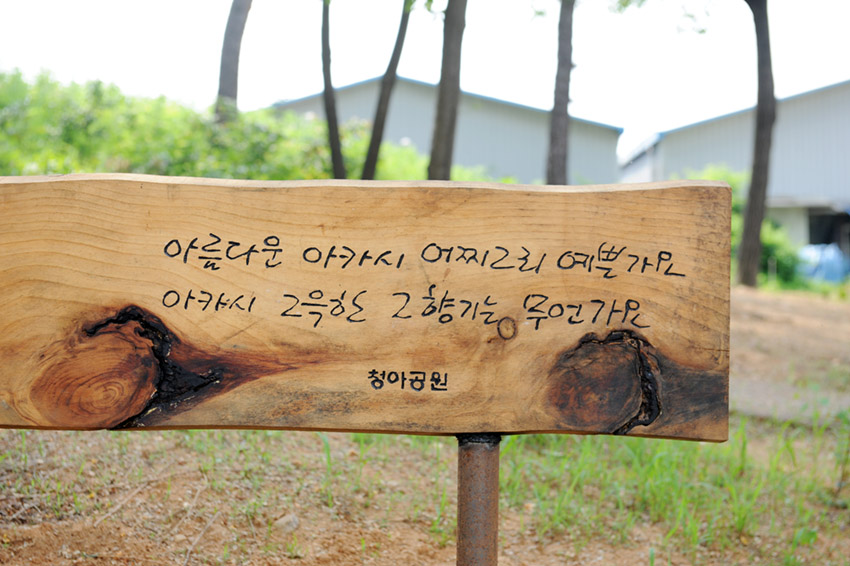 아름다운 아카시 어찌그리 예쁠가요
아카시 그윽한 그 향기는 무언가요
청아공원